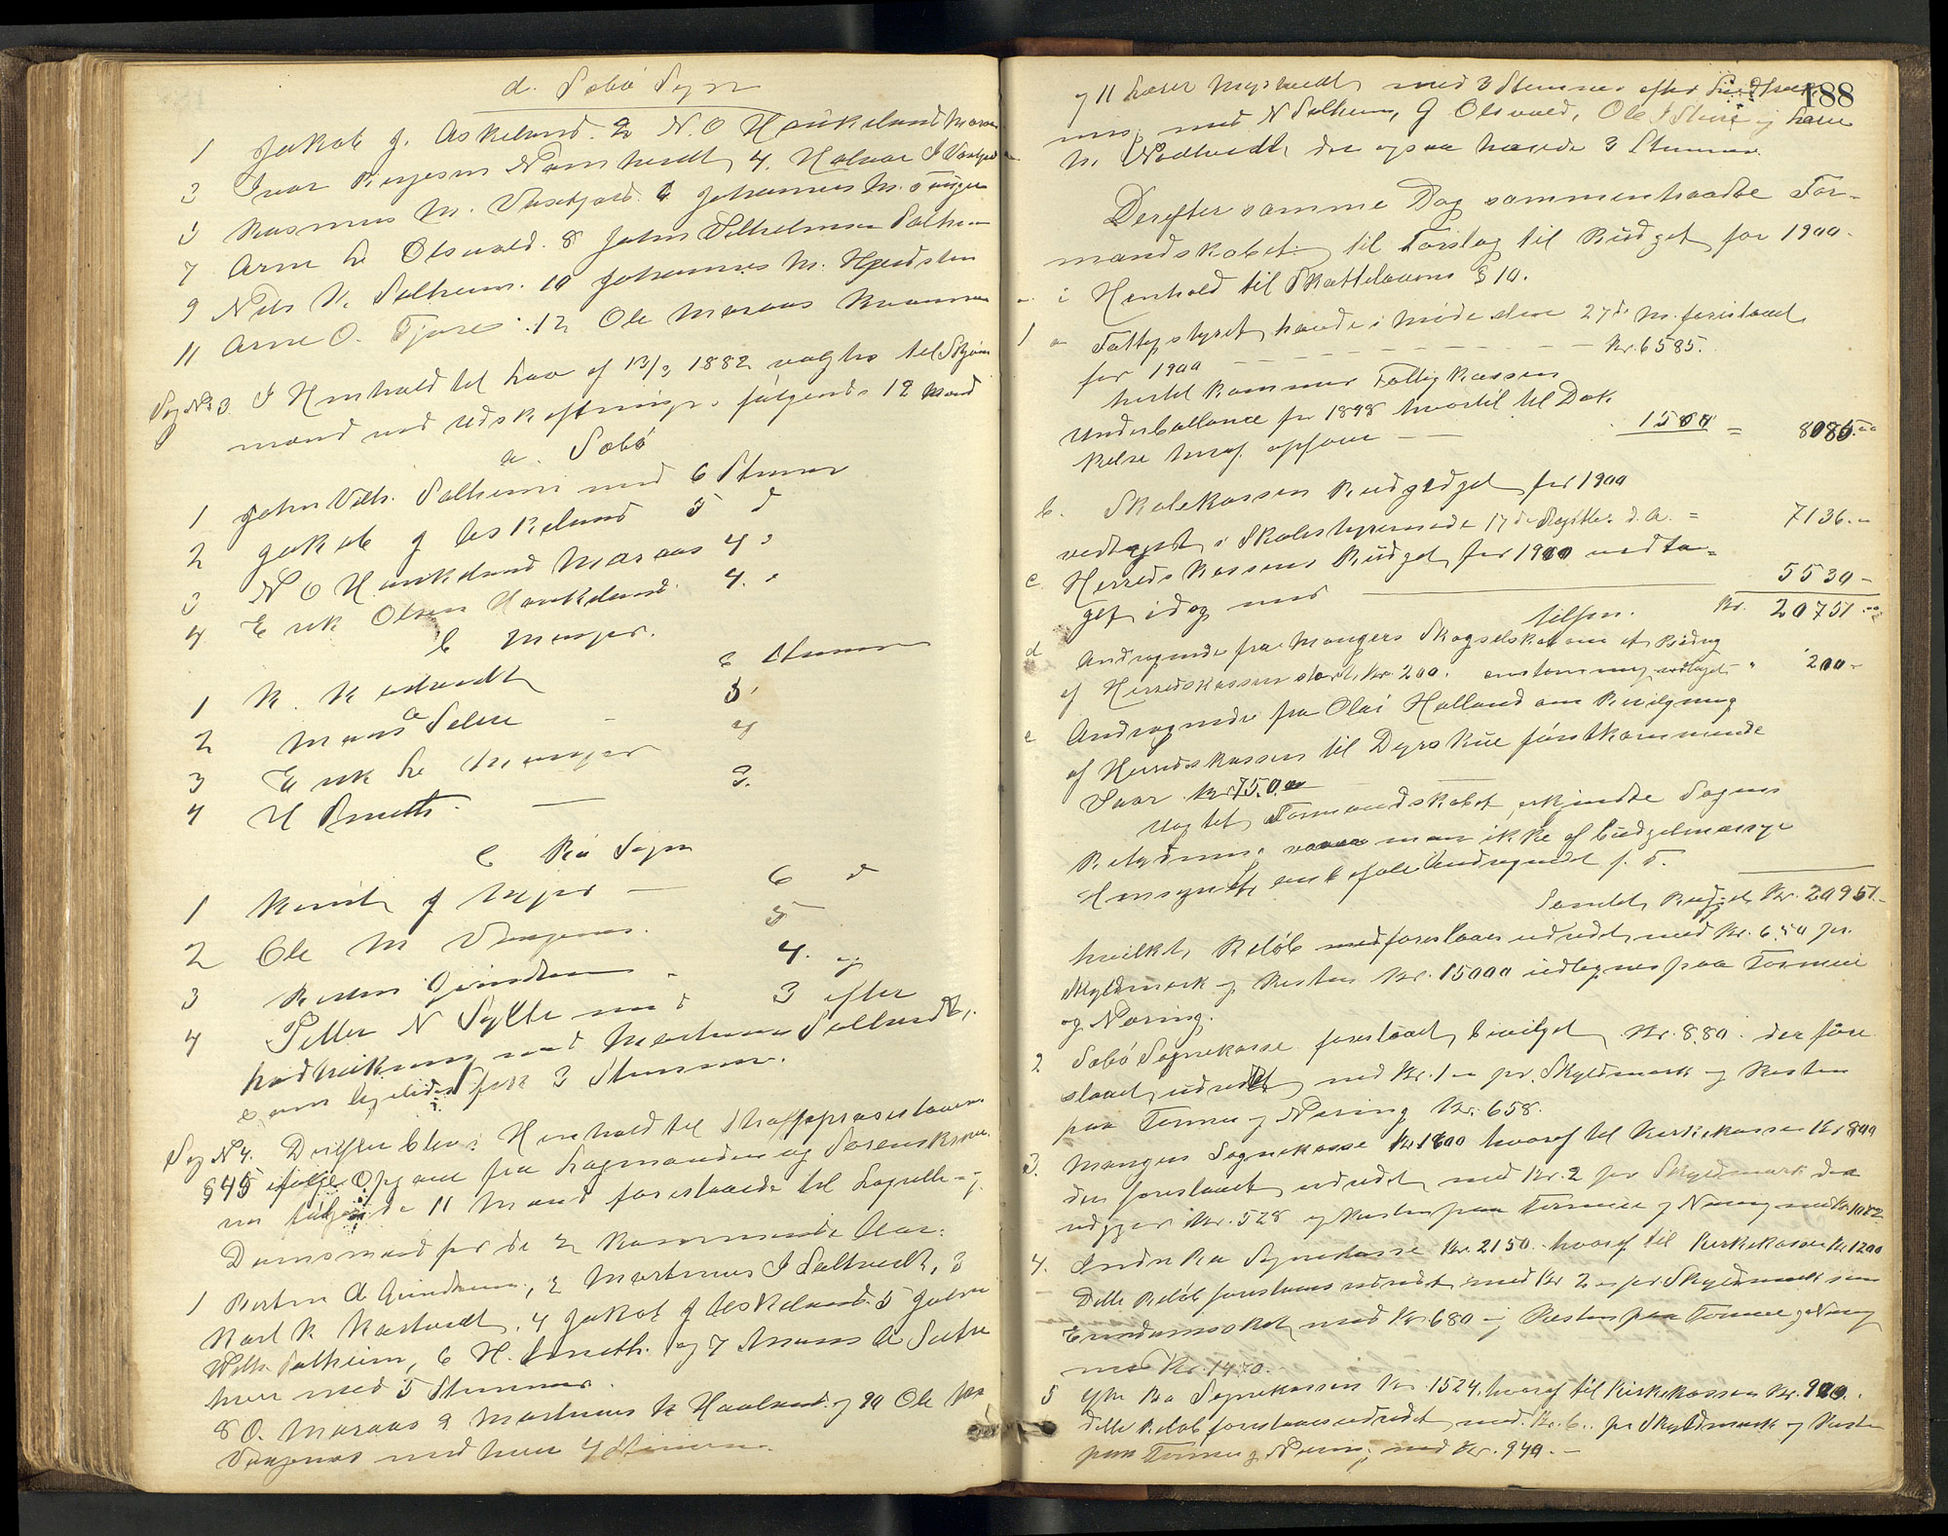 d. Sæbö Sogn
1 Jakob J. Askeland. 2 N. O Haukeland Maraas
3 Ivar Børgesen 4. Halvor I
5 Rasmus M. 6 Johannes M.
7 Arne L Olsvold. 8 John Vilhelmsen Solheim
9 Nils N. Solheim. 10 Johannes M.
11 Arne O. 12 Ole Maraas
Sag No 3. I Henhold til Lov af 13/3 1882 valgtes til Skjöns
mænd ved Udskiftninger følgende 12 Mænd
a. Sæbö
1 John Vilh. Solheim med 6 Stemmer
2 Jakob J Askeland 5 d
3 N O Haukeland Maraas 4 "
4 Erik Olsen Haukeland 4. "
b Manger.
1 K. 6 Stemmer
2 Mons A Sætre - 5 "
3 Erik L. Manger 4
4 H Smith. — 3.
c Bö Sogn
1 Knut J — 6 d
2 Ole M Vaagenes. 5
3 Berten Grindheim " 4. og
4 Petter N Sylte med 3 efter
Lodtrækning med Martinus Soltvedt,
som ligeledes fik 3 Stemmer.
Sag N 4. Derefter blev i Henhold til Straffeproceslovens
§ 45 ifølge Opgave fra Lagmanden og Sorenskriver
en følgende 11 Mænd foreslaaede til Lagrette- og
Domsmænd for de 2 kommende Aar:
1 Berten A Grindheim, 2 Martinus I Soltvedt, 3
Karl K 4 Jakob J Askeland 5 John
Wilh. Solheim, 6 H. Smith. og 7 Mons A Sætre
hver med 5 Stemmer.
8 O. Maraas 9 Martinus K Haaland og 10 Ole M
Vaagenes med hver 4 Stemmer.
188
og 11 Lasse med 3 Stemmer efter Lodtræk-
ning med N Solheim, J Olsvold, Ole I og Lasse
N. der ogsaa havde 3 Stemmer.
Derefter samme Dag sammentraadte For-
mandskabet til Forslag til Budget for 1900.
i Henhold til Skattelovens § 10.
1 a Fattigstyret havde i Møde den 27de M. foreslaaet
for 1900 — — — Kr. 6585.
hertil kommer Fattigkassens
Underballance for 1898 hvortil til Dæk
kelse heraf opføres — — 1500 = 8085.00
b. Skolekassens Budget for 1900
vedtaget i Skolestyremøde 17de Septbr. d. A. = 7136.-
c Herredskassens Budget for 1900 vedta-
get idag med 5530 -
tilsm. Kr. 20751.-
d Andragende fra Mangers Skogselskab om et Bidrag
af Herredskassen stort Kr 200. enstemmig vedtaget " 200 -
e Andragende fra Olai Holland om Bevilgning
af Herredskassen til Dyrskue førstkommende
Vaar Kr 75.00
Uagtet Formandskabet erkjendte Sagens
Betydning man ikke af budgetmæssige
Hensyn at anbefale Andragendet f. T.
Samlet Budget Kr. 20951.-
hvilket Beløb foreslaaes udredet med Kr. 6.50 pr.
Skyldmark og Resten Kr. 15000 udlignes paa Formue
og Næring.
2 Sæbö Sognekasse foreslaaet bevilget Kr. 880. der fore
slaaet udredet med Kr. 1 - pr. Skyldmark og Resten
paa Formue og Næring Kr. 658.
3. Mangers Sognekasse Kr 1600 hvoraf til Kirkekassen Kr 800
der foreslaaet udredet med Kr. 2 pr Skyldmark der
udgjør Kr. 528 og Resten paa Formue og Næring med Kr. 1072
4. Indre Bø Sognekasse Kr. 2150. hvoraf til Kirkekassen Kr 1200
Dette Beløb foreslaaes udredet med Kr 2 - pr Skyldmark som
Eiendomsskat med Kr 680 og Resten paa Formue og Næring
med Kr. 1470.
5 Ytre Bø Sognekassen Kr. 1524. hvoraf til Kirkekassen Kr. 900.
dette Beløb foreslaaes udredet med Kr. 6.. pr Skyldmark og Resten
paa Formue og Næring med Kr. 940. -